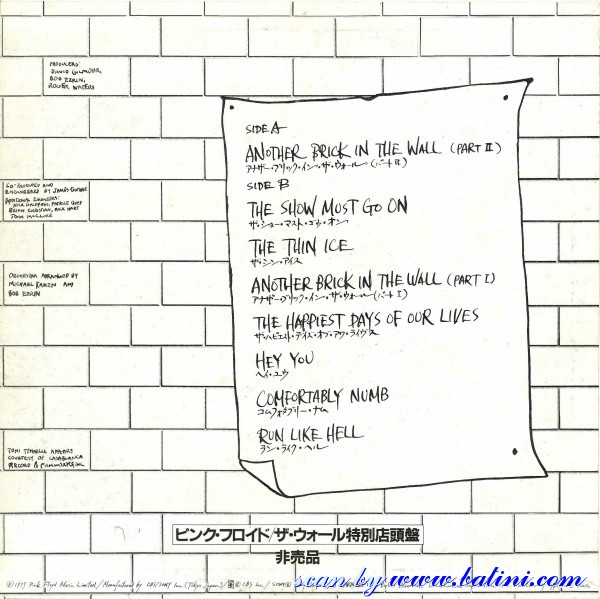 PRODUCERS:
DAVID GILMOUR,
BOB EZRIN,
ROGER WATERS
CO-PRODUCED AND
ENGINEERED BY JAMES GUTHRIE
ORCHESTRA ARRANGED BY
MICHAEL KAMEN AND
BOB EZRIN
TONI TENNILLE APPEARS
COURTESY OF CASABLANCA
RECORD & FILMWORKS INC
SIDE A
ANOTHER BRICK IN THE WALL (PART II)
アナザー・ブリック・イン・ザ・ウォール(パートII)
SIDE B
THE SHOW MUST GO ON
ザ・ショー・マスト・ゴウ・オン
THE THIN ICE
ザ・シン・アイス
ANOTHER BRICK IN THE WALL (PART I)
アナザー・ブリック・イン・ザ・ウォール(パートI)
THE HAPPIEST DAYS OF OUR LIVES
ザ・ハピエスト・デイズ・オブ・アワ・ライヴス
HEY YOU
ヘイ・ユウ
COMFORTABLY NUMB
コムフォタブリー・ナム
RUN LIKE HELL
ラン・ライク・ヘル
ピンク・フロイド/ザ・ウォール特別店頭盤
非売品
℗1979 Pink Floyd Music Limited / Manufactured by CBS/SONY Inc. (Tokyo Japan) / CBS Inc. / SONY
scan by www.batini.com